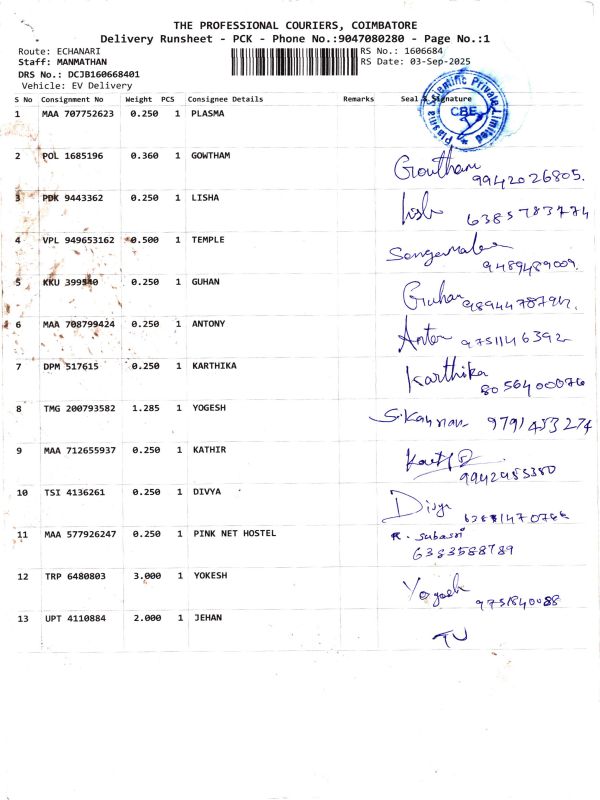 THE PROFESSIONAL COURIERS, COIMBATORE
Delivery Runsheet - PCK - Phone No.:9047080280 - Page No.:1
Route: ECHANARI RS No.: 1606684
Staff: MANMATHAN RS Date: 03-Sep-2025
DRS No.: DCJB160668401
Vehicle: EV Delivery
S No Consignment No Weight PCS Consignee Details Remarks Seal & Signature
Plasma Scientific Private Limited CBE
1 MAA 707752623 0.250 1 PLASMA
2 POL 1685196 0.360 1 GOWTHAM Goutham 9942026805.
3 PDK 9443362 0.250 1 LISHA 6385783774
4 VPL 949653162 0.500 1 TEMPLE 9489489009.
5 KKU 399340 0.250 1 GUHAN Guhan
6 MAA 708799424 0.250 1 ANTONY Anton 9751146392
7 DPM 517615 0.250 1 KARTHIKA Karthika 8056400076
8 TMG 200793582 1.285 1 YOGESH 9791453274
9 MAA 712655937 0.250 1 KATHIR 9942985380
10 TSI 4136261 0.250 1 DIVYA Divya
11 MAA 577926247 0.250 1 PINK NET HOSTEL R. Subasri
6383588789
12 TRP 6480803 3.000 1 YOKESH Yogesh 9751840088
13 UPT 4110884 2.000 1 JEHAN